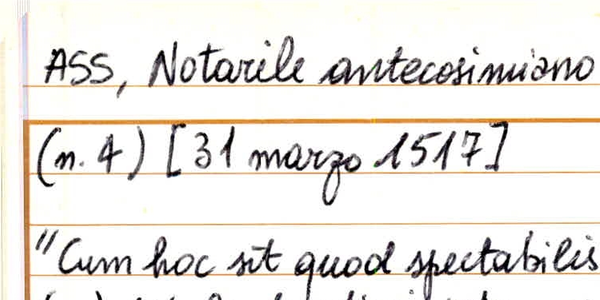 ASS, Notarile antecosimiano
(n. 4) [31 marzo 1517]
"Cum hoc sit quod spectabilis